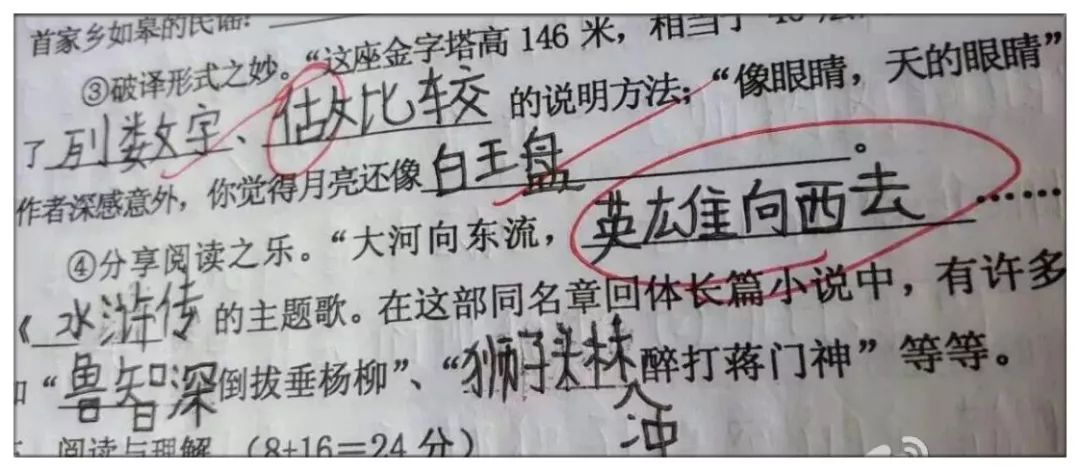 首家乡如皋的民谣:
③破译形式之妙。“这座金字塔高146米，相当于
了列数字、估比较的说明方法；“像眼睛，天的眼睛”
作者深感意外，你觉得月亮还像白王盘。
④分享阅读之乐。“大河向东流，英雄向西去……
《水浒传的主题歌。在这部同名章回体长篇小说中，有许多
“鲁智深倒拔垂杨柳”、“狮子头林冲醉打蒋门神”等等。
阅读与理解（8+16＝24分）